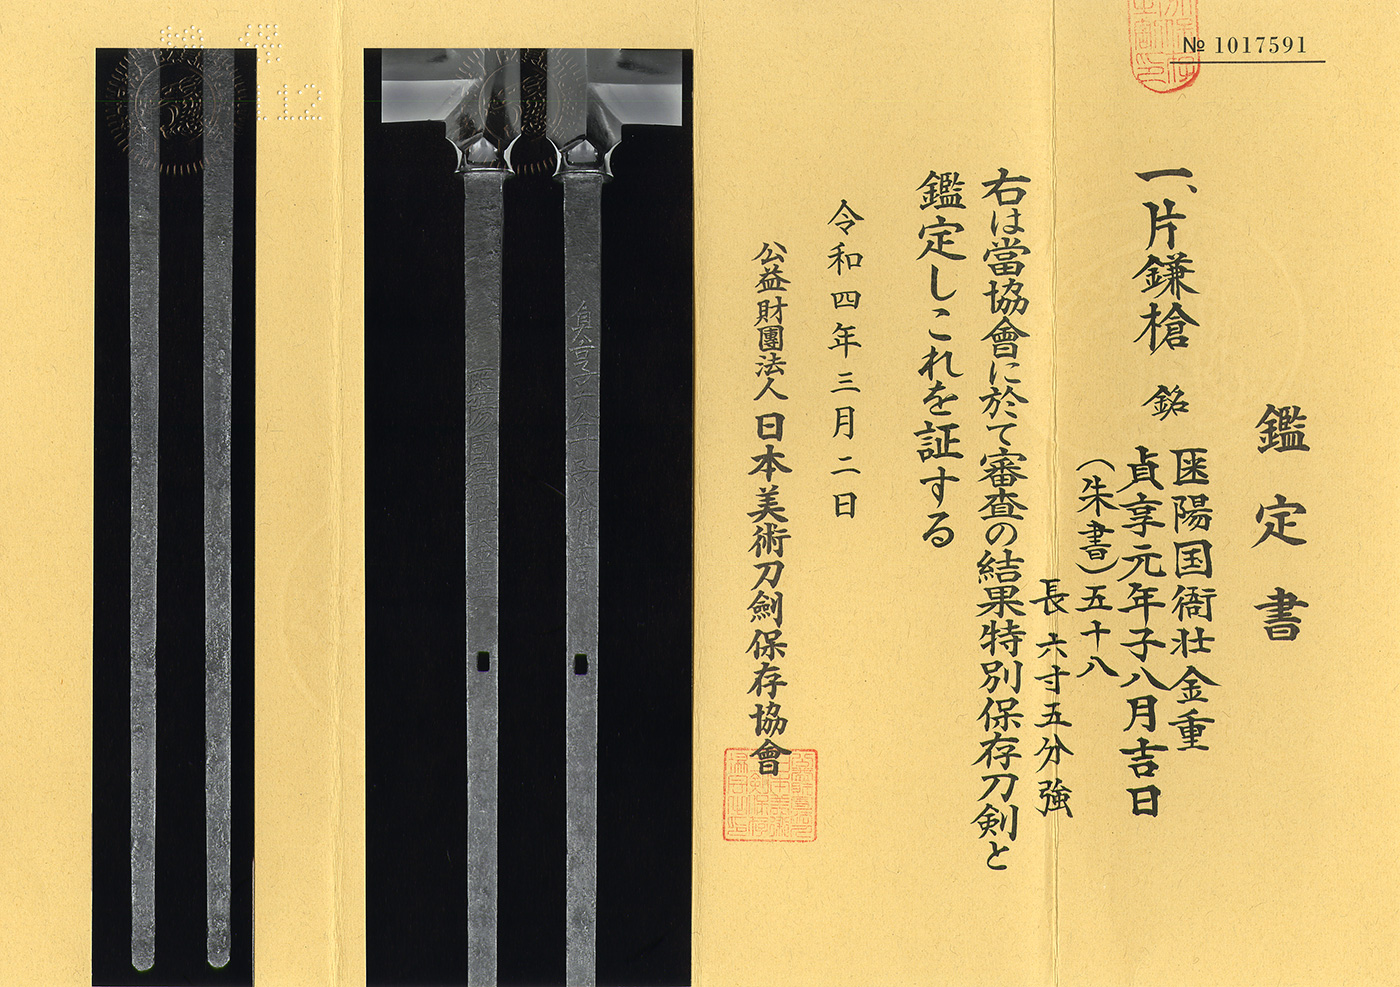 № 1017591
鑑定書
一、片鎌槍 銘 匧陽国衙壮金重
貞享元年子八月吉日
(朱書)五十八
長六寸五分強
右は當協會に於て審査の結果特別保存刀剣と
鑑定しこれを証する
令和四年三月二日
公益財團法人 日本美術刀劍保存協會
112